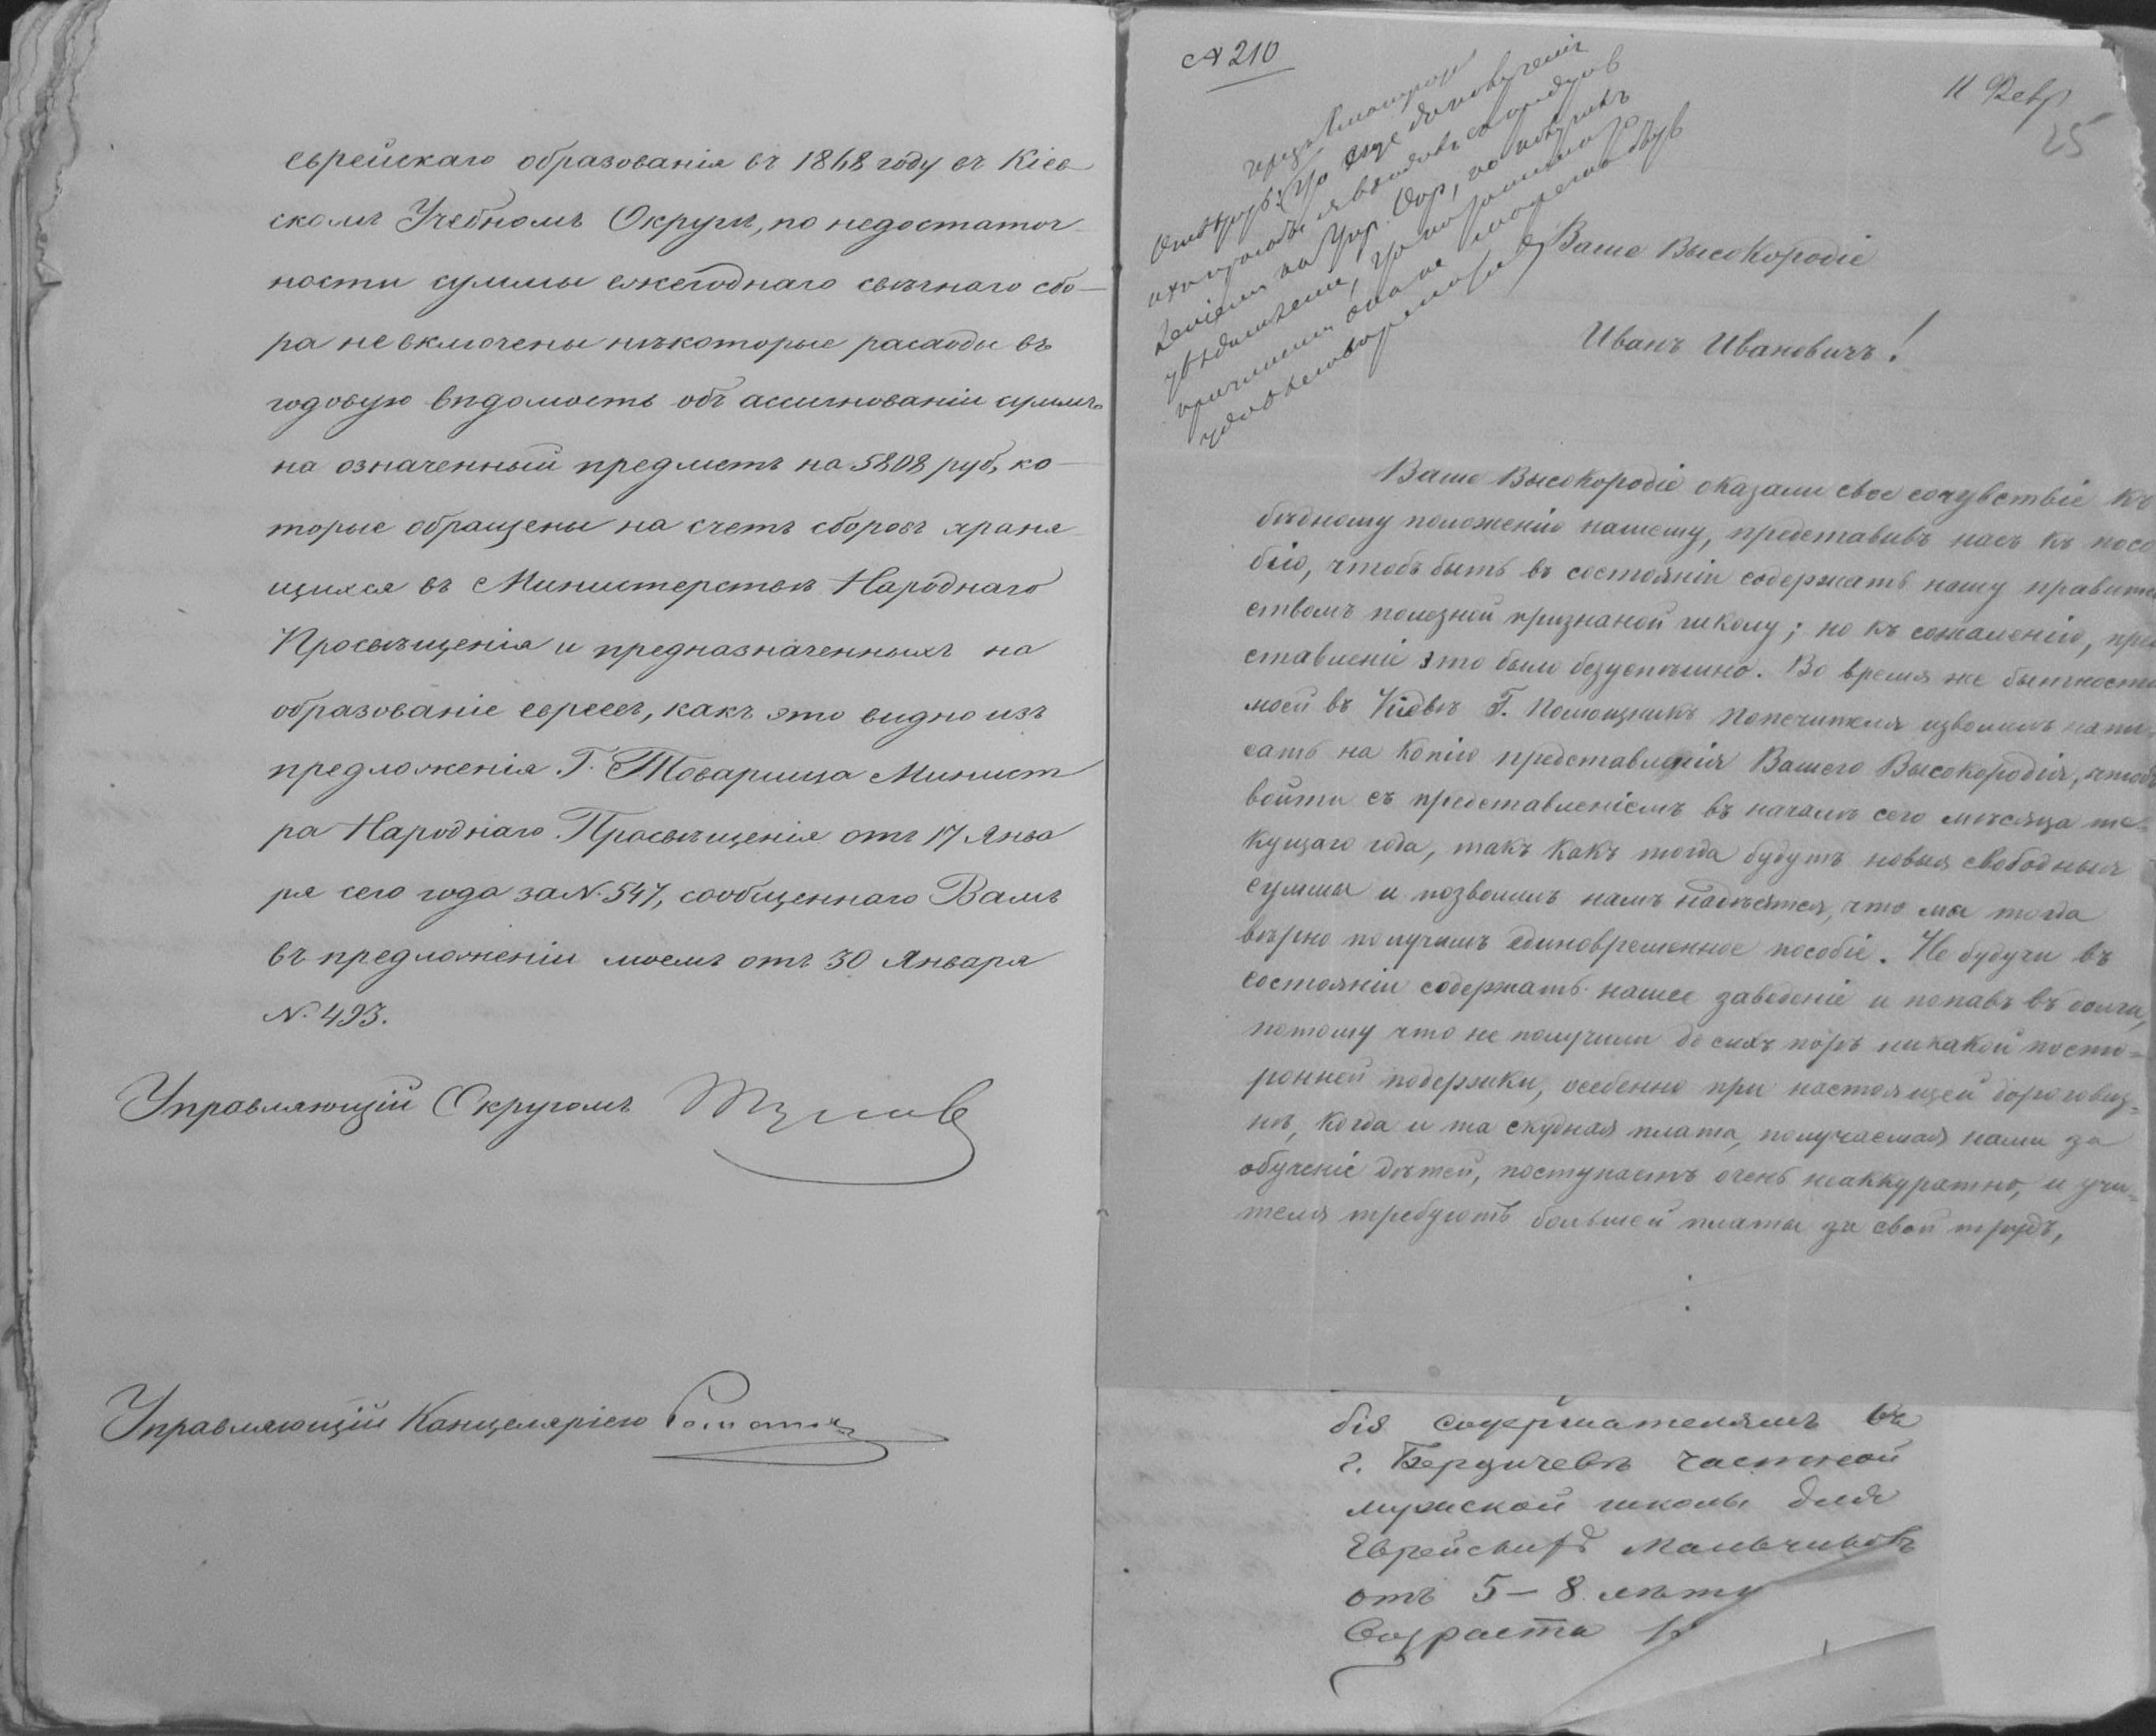 еврейскаго образованія въ 1868 году въ Кіев-
скомъ Учебномъ Округѣ, по недостаточ-
ности суммы ежегоднаго свѣчнаго сбо-
ра не включены нѣкоторые расходы въ
годовую вѣдомость объ ассигнованіи суммъ
на означенный предметъ на 5808 руб, ко-
торые обращены на счетъ сборовъ храня-
щихся въ Министерствѣ Народнаго
Просвѣщенія и предназначенныхъ на
образованіе евреевъ, какъ это видно изъ
предложенія Г. Товарища Минист
ра Народнаго Просвѣщенія отъ 17 Янва
ря сего года за N. 547, сообщеннаго Вамъ
въ предложеніи моемъ отъ 30 Января
N. 493.
Управляющій Округомъ
Управляющій Канцеляріею
N 210
11 Февр
25
Ваше Высокородіе
Иванъ Ивановичъ!
Ваше Высокородіе оказали свое сочувствіе къ
бѣдному положенію нашему, представивъ насъ къ посо
бію, чтобъ быть въ состояніи содержать нашу правител
ствомъ полезной признаной школу; но къ сожаленію, пред
ставленіе это было безуспѣшно. Во время же бытности
моей въ Кіевѣ Г. Помощникъ Попечителя изволилъ напи-
сать на копію представленія Вашего Высокородія, чтобъ
войти съ представленіемъ въ началѣ сего мѣсяца те-
кущаго года, такъ какъ тогда будутъ новыя свободныя
суммы и позволилъ намъ надѣятся, что мы тогда
вѣрно получимъ единовременное пособіе. Не будучи въ
состояніи содержать нашее заведеніе и попавъ въ долги,
потому что не получили до сихъ поръ никакой посто-
ронней подержки, особенно при настоящей дороговиз-
нѣ, когда и та скудная плата, получаемая нами за
обученіе дѣтей, поступаетъ очень неаккуратно, и учи-
теля требуютъ большей платы за свой трудъ,
бія содержателямъ въ
г. Бердичевѣ частной
мужской школы для
Еврейскихъ мальчиковъ
отъ 5-8 лѣтн
возраста